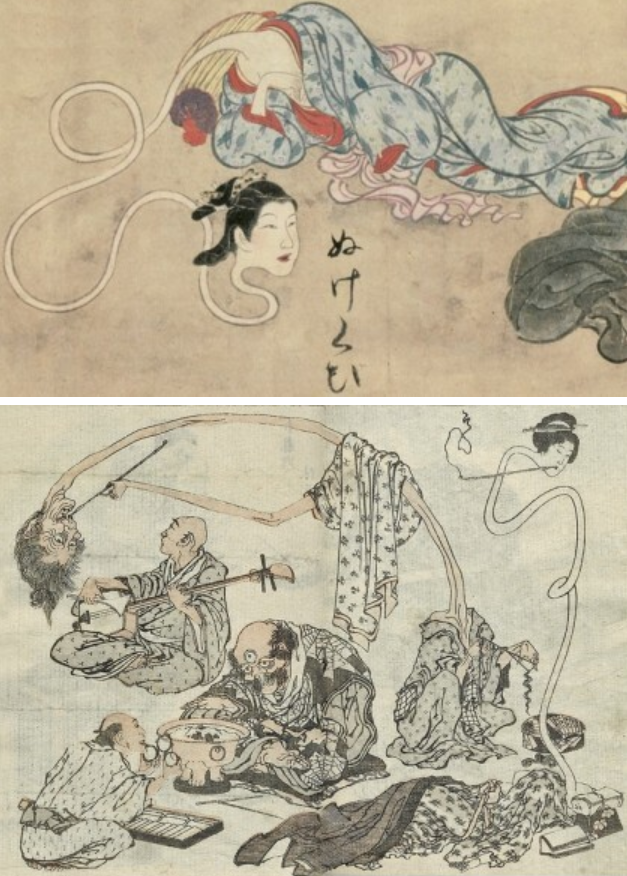 ぬけくび